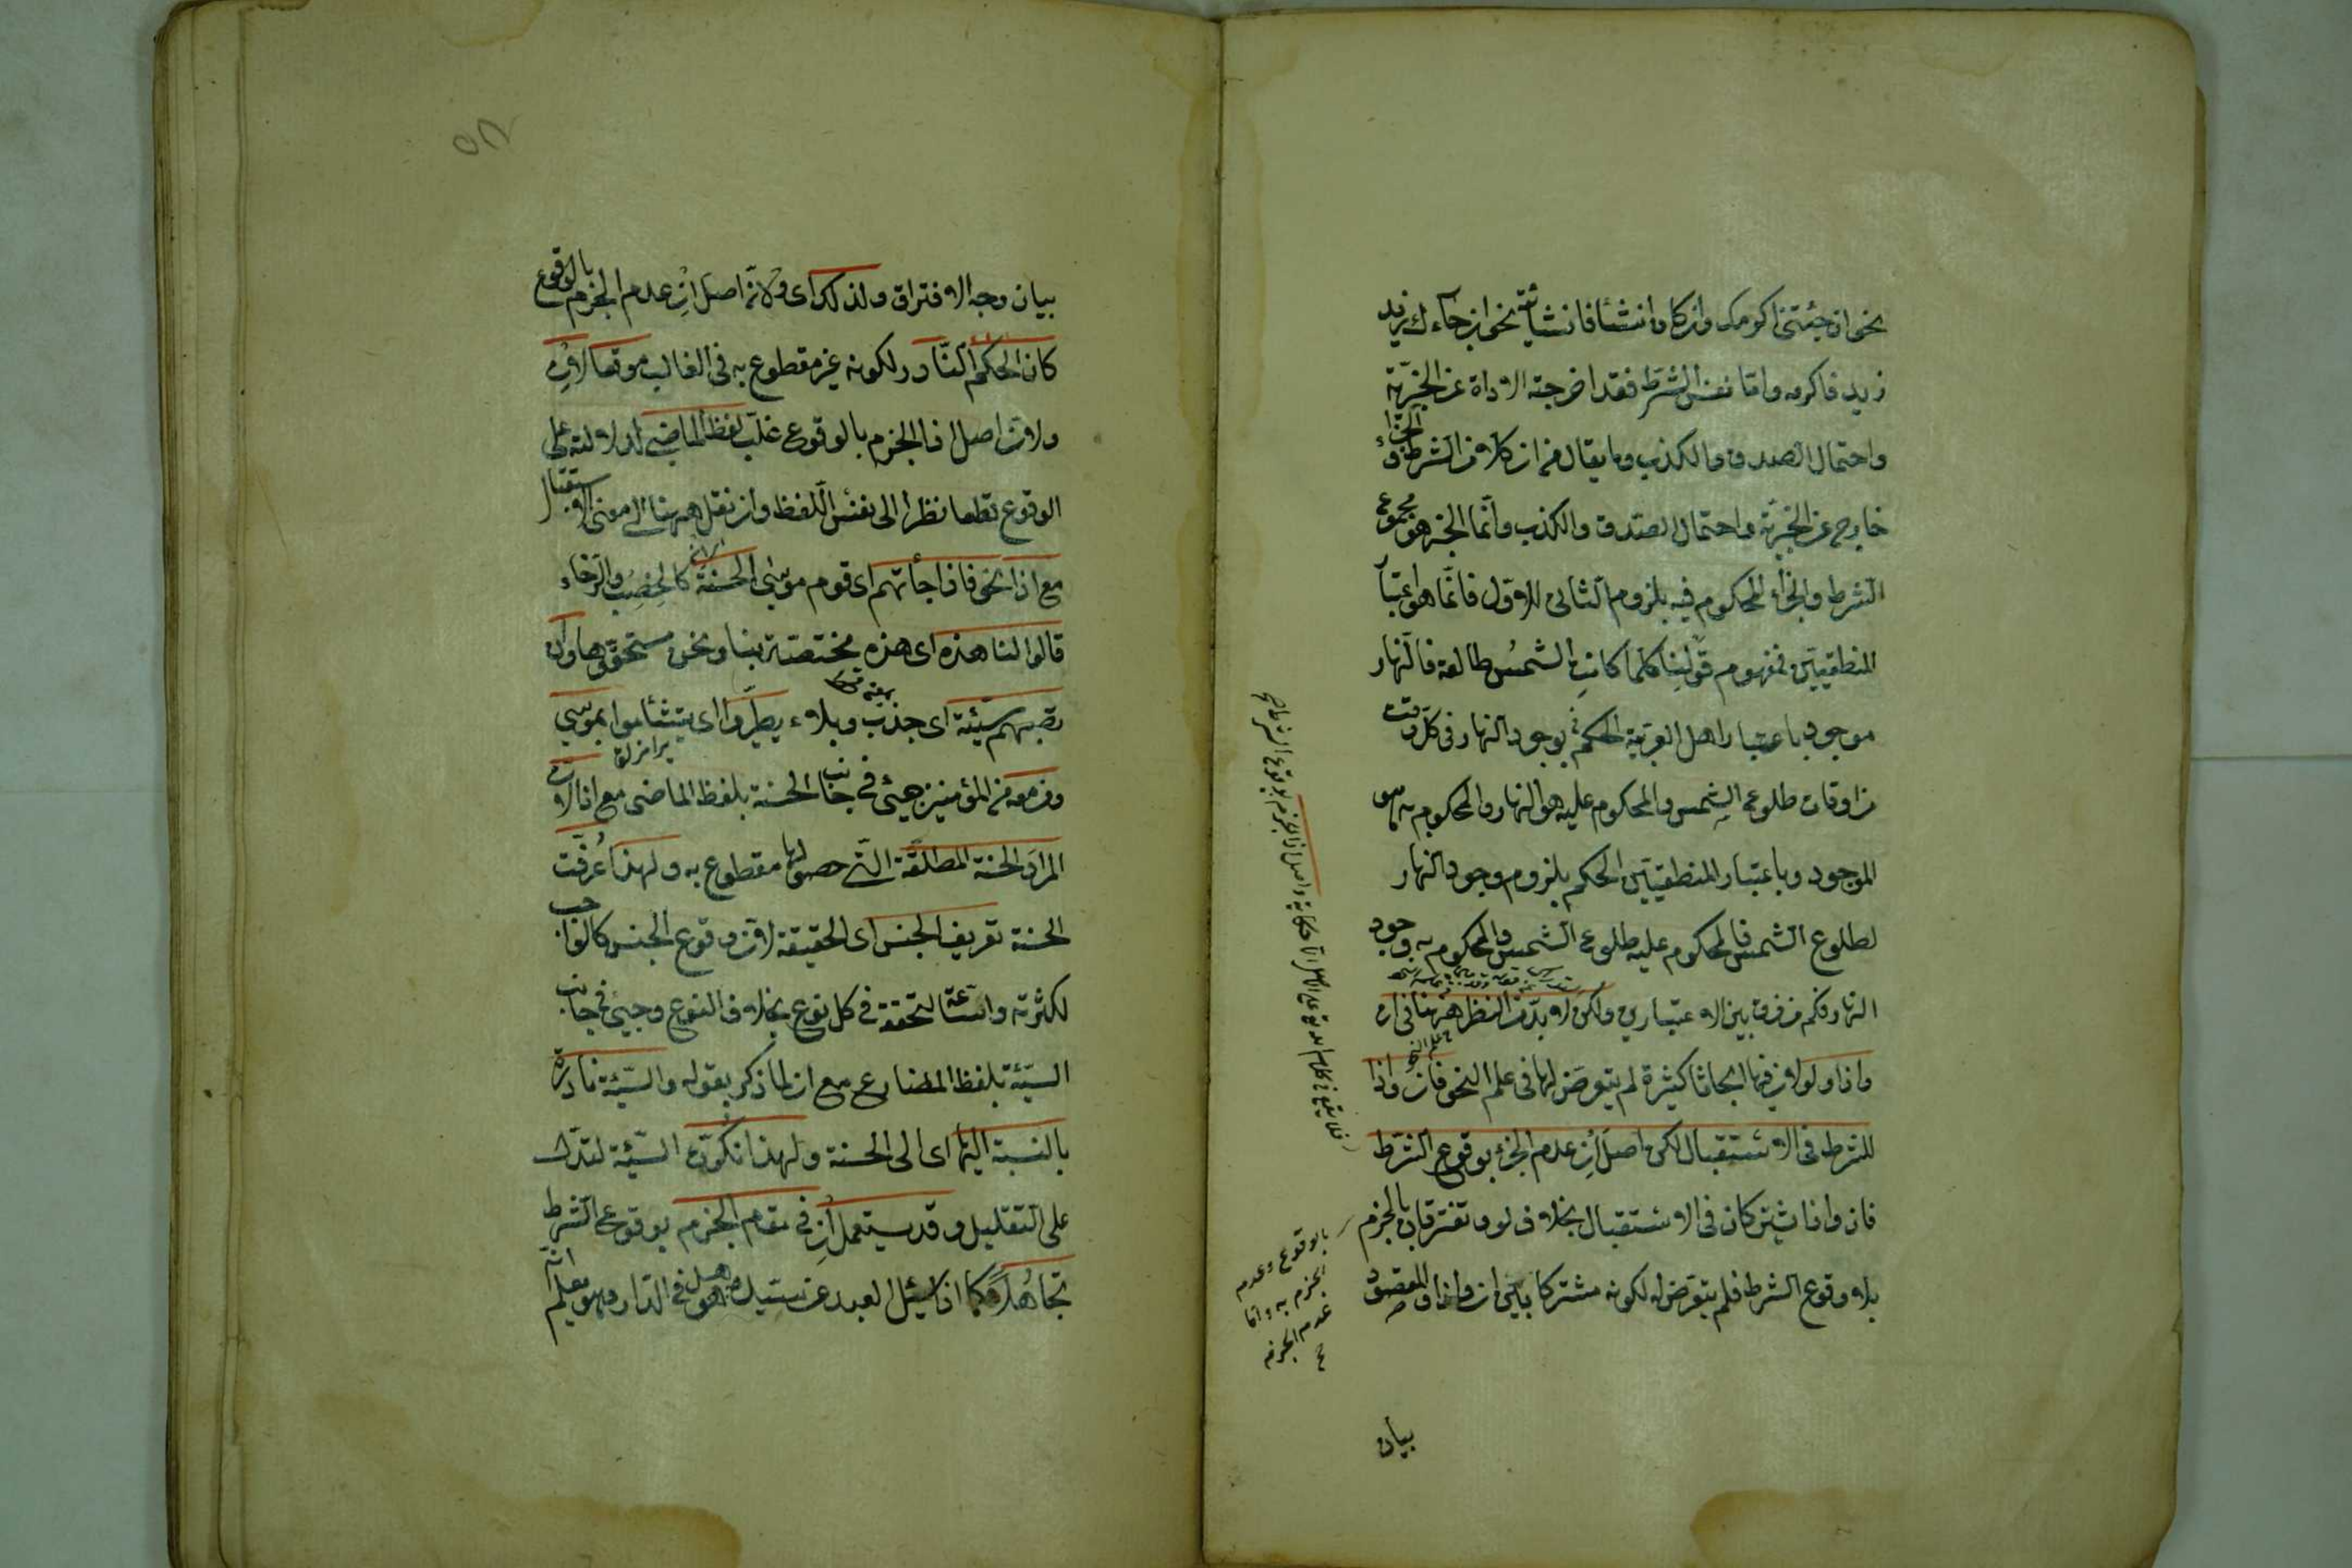 نحوان جئتنی اکرمک وان کان انشئا فانشائیة نحوان جاءک زید
زید فاکرمه واما نفس الشرط فقد اخرجته الاداة عن الخبریّة
واحتمال الصدق والکذب وما یقال من ان کلا من الشرط و الجزاء
خارج عن الخبریّة واحتمال الصدق والکذب وانّما الخبر هو مجموع
الشرط والجزاء المحکوم فیه بلزوم الثانی للاول فانّما هو اعتبار
المنطقیین فمفهوم قولنا کلما کانت الشمس طالعة فالنهار
موجود باعتبار اهل العربیّة الحکم بوجود النهار فی کلّ وقت
من اوقات طلوع الشمس والمحکوم علیه هو النهار والمحکوم به هو
الموجود وباعتبار المنطقیین الحکم بلزوم وجود النهار
لطلوع الشمس فالمحکوم علیه طلوع الشمس والمحکوم به وجود
النهار فکم من فرق بین الاعتبارین ولکن لا بدّ من النظر ههنا فی ان
واذا ولو لان فیها ابحاثا کثیرة لم یتعرض لها فی علم النحو فان واذا
للشرط فی الاستقبال لکن اصل ان عدم الجزم بوقوع الشرط
فان واذا یشترکان فی الاستقبال بخلاف لو و تفترقان بالجزم
بالوقوع وعدم
الجزم به واما
عدم الجزم
بلا وقوع الشرط فلم یتعرض له لکونه مشترکا بین ان واذا والمقصود
بیان
بیان وجه الافتراق ولذلک ای ولانّ اصل ان عدم الجزم بالوقوع
کان الحکم النّادر لکونه غیر مقطوع به فی الغالب موقعا لان
ولان اصل اذا الجزم بالوقوع غلب لفظ الماضی لدلالته علی
الوقوع قطعا نظرا الی نفس اللفظ وان نقل ههنا الی معنی الاستقبال
مع اذا نحو فاذا جأتهم ای قوم موسی الحسنة کالخصب والرخاء
قالوا لنا هذه ای هذه مختصة بنا ونحن مستحقوها وان
تصبهم سیّئة ای جدب وبلاء یطیّروا ای یتشأموا بموسی
ومن معه من المؤمنین جیئ فی جانب الحسنة بلفظ الماضی مع اذا لان
المراد الحسنة المطلقة التی حصولها مقطوع به ولهذا عُرّفت
الحسنة تعریف الجنس ای الحقیقة لان وقوع الجنس کالواجب
لکثرته واتساعه لتحققه فی کل نوع بخلاف النوع وجیئ فی جانب
السیّئة بلفظ المضارع مع ان لما ذکر بقوله والسیّئة نادرة
بالنسبة الیها ای الی الحسنة ولهذا نکّرت السیّئة لتدلّ
علی التقلیل وقد یستعمل ان فی مقام الجزم بوقوع الشرط
تجاهلا کما اذا سئل العبد عن سیّده هل هو فی الدار وهو یعلم انّه